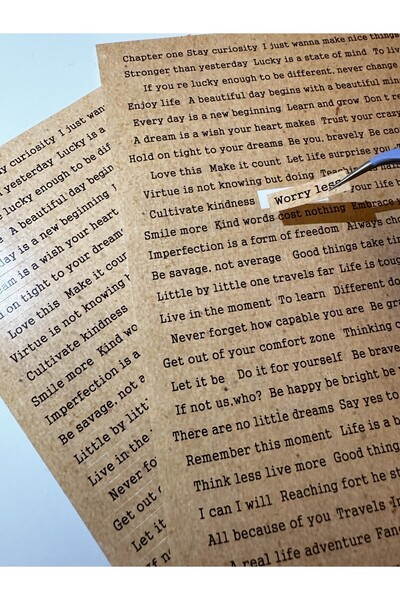 Chapter one Stay curiosity I just wanna make nice things
Stronger than yesterday Lucky is a state of mind To liv
If you re lucky enough to be different, never change
Enjoy life A beautiful day begins with a beautiful min
Every day is a new beginning Learn and grow Don t re
A dream is a wish your heart makes Trust your crazy
Hold on tight to your dreams Be you, bravely Be ca
Love this Make it count Let life surprise you
Virtue is not knowing but doing
Cultivate kindness Worry less your life b
Smile more Kind words cost nothing Embrace
Imperfection is a form of freedom Always cho
Be savage, not average Good things take tim
Little by little one travels far Life is toug
Live in the moment To learn Different do
Never forget how capable you are Be gra
Get out of your comfort zone Thinking o
Let it be Do it for yourself Be brave
If not us,who? Be happy be bright be y
There are no little dreams Say yes to
Remember this moment Life is a b
Think less live more Good thing
I can I will Reaching fort he st
All because of you Travels in
A real life adventure Fan
y curiosity I just wan
yesterday Lucky is a
e lucky enough to be dif
A beautiful day begin
day is a new beginning
eam is a wish your heart
d on tight to your dream
Love this Make it coun
Virtue is not knowing b
Cultivate kindness
Smile more Kind wo
Imperfection is a
Be savage, not a
Little by litt
Live in the
Never fo
Get out o
Let it
If n